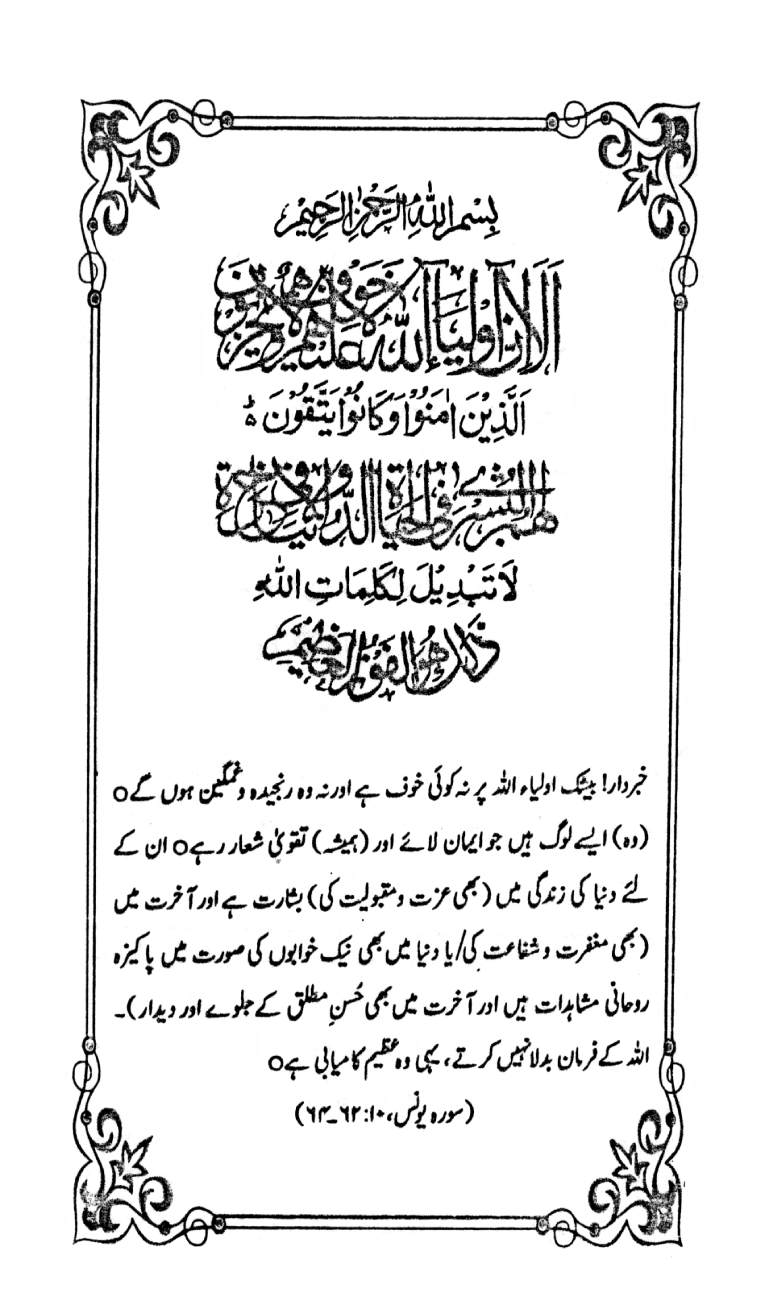 بِسْمِ اللهِ الرَّحْمٰنِ الرَّحِيْمِ
اَلَا اِنَّ اَوْلِيَآءَ اللهِ لَا خَوْفٌ عَلَيْهِمْ وَلَا هُمْ يَحْزَنُوْنَ
اَلَّذِيْنَ اٰمَنُوْا وَكَانُوْا يَتَّقُوْنَ ؕ
لَهُمُ الْبُشْرٰى فِى الْحَيَاةِ الدُّنْيَا وَفِى الْاٰخِرَةِ
لَا تَبْدِيْلَ لِكَلِمَاتِ اللهِ
ذٰلِكَ هُوَ الْفَوْزُ الْعَظِيْمُ
خبردار! بیشک اولیاء اللہ پر نہ کوئی خوف ہے اور نہ وہ رنجیدہ و غمگین ہوں گے۝
(وہ) ایسے لوگ ہیں جو ایمان لائے اور (ہمیشہ) تقویٰ شعار رہے۝ ان کے
لئے دنیا کی زندگی میں (بھی عزت و مقبولیت کی) بشارت ہے اور آخرت میں
(بھی مغفرت و شفاعت کی/یا دنیا میں بھی نیک خوابوں کی صورت میں پاکیزہ
روحانی مشاہدات ہیں اور آخرت میں بھی حُسنِ مطلق کے جلوے اور دیدار)۔
اللہ کے فرمان بدلا نہیں کرتے، یہی وہ عظیم کامیابی ہے۝
(سورہ یونس، ۱۰: ۶۲۔۶۴)